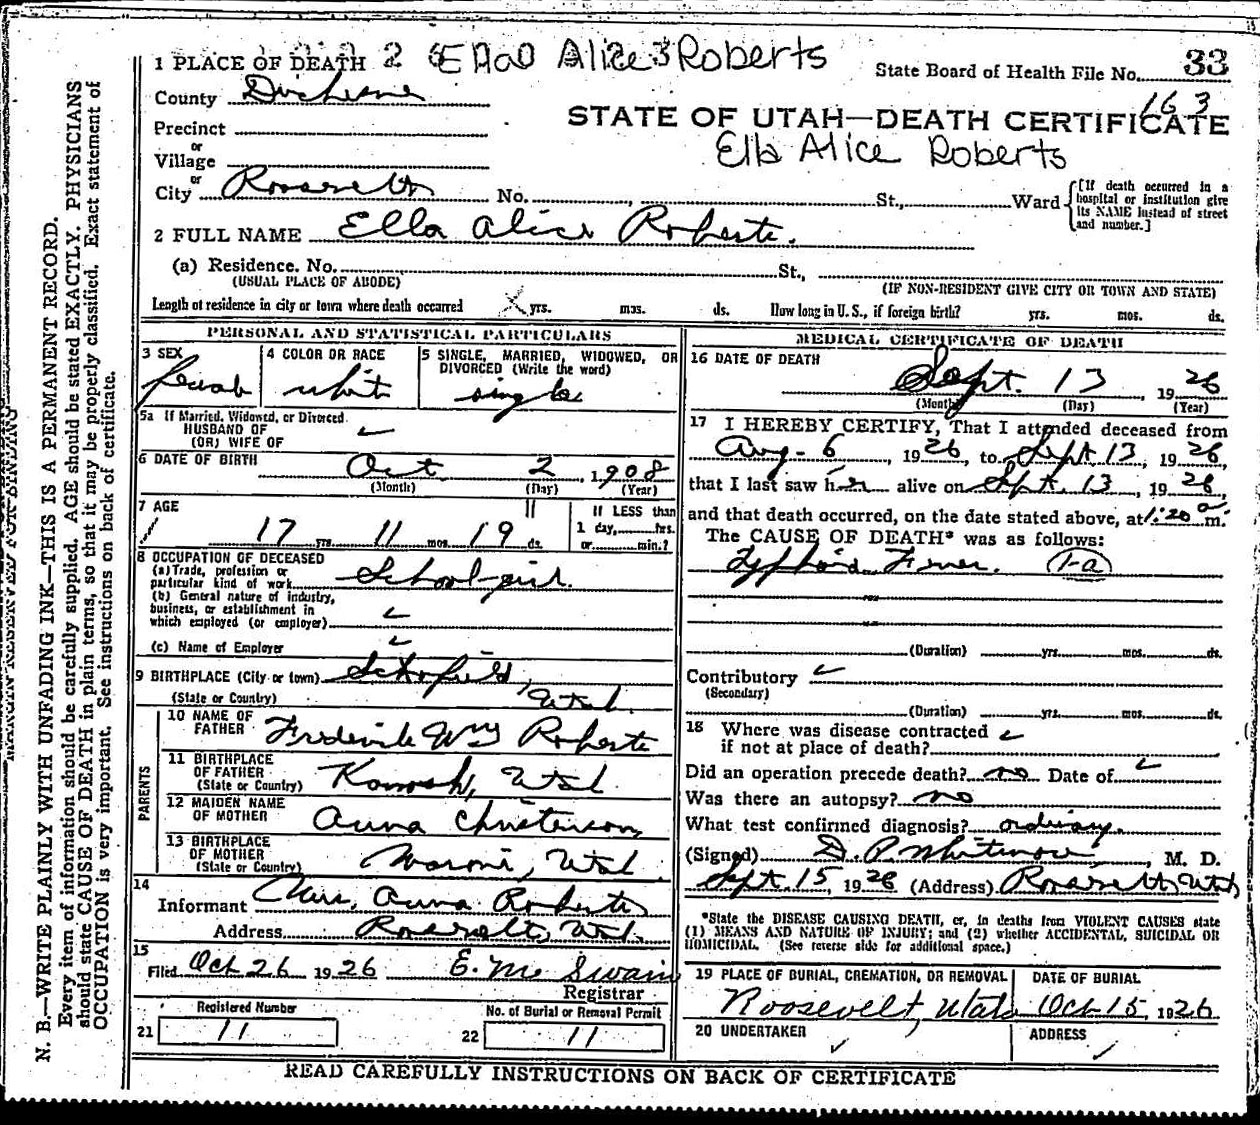 1 PLACE OF DEATH 2 Ella Alice Roberts
State Board of Health File No. 33
163
County Duchesne
STATE OF UTAH—DEATH CERTIFICATE
Ella Alice Roberts
Precinct
or
Village
or
City Roosevelt No. , St., Ward
[If death occurred in a
hospital or institution give
its NAME instead of street
and number.]
2 FULL NAME Ella Alice Roberts.
(a) Residence. No. St.,
(USUAL PLACE OF ABODE) (IF NON-RESIDENT GIVE CITY OR TOWN AND STATE)
Length of residence in city or town where death occurred yrs. mos. ds. How long in U. S., if foreign birth? yrs. mos. ds.
PERSONAL AND STATISTICAL PARTICULARS
3 SEX 4 COLOR OR RACE 5 SINGLE, MARRIED, WIDOWED, OR
DIVORCED (Write the word)
female white single
5a If Married, Widowed, or Divorced
HUSBAND OF
(OR) WIFE OF
6 DATE OF BIRTH Oct 2, 1908
(Month) (Day) (Year)
7 AGE 11 If LESS than
17 yrs. 11 mos. 19 ds. 1 day, hrs.
or min.?
8 OCCUPATION OF DECEASED
(a) Trade, profession or
particular kind of work School-girl.
(b) General nature of industry,
business, or establishment in
which employed (or employer)
(c) Name of Employer
9 BIRTHPLACE (City or town) Schofield,
(State or Country) Utah.
PARENTS
10 NAME OF
FATHER Frederick Wm Roberts
11 BIRTHPLACE
OF FATHER Kanosh, Utah.
(State or Country)
12 MAIDEN NAME
OF MOTHER Anna Christensen
13 BIRTHPLACE
OF MOTHER Moroni, Utah.
(State or Country)
14
Informant Mrs. Anna Roberts
Address Roosevelt, Utah.
15
Filed Oct 26 1926 E. Mc Swain
Registrar
Registered Number No. of Burial or Removal Permit
21 11 22 11
MEDICAL CERTIFICATE OF DEATH
16 DATE OF DEATH
Sept. 13, 1926
(Month) (Day) (Year)
17 I HEREBY CERTIFY, That I attended deceased from
Aug- 6, 1926, to Sept 13, 1926,
that I last saw her alive on Sept. 13, 1926,
and that death occurred, on the date stated above, at 1:20 a m.
The CAUSE OF DEATH* was as follows:
Typhoid Fever. 1-a
(Duration) yrs. mos. ds.
Contributory
(Secondary)
(Duration) yrs. mos. ds.
18 Where was disease contracted
if not at place of death?
Did an operation precede death? no Date of
Was there an autopsy? no
What test confirmed diagnosis? ordinary.
(Signed) D. P. Whitmore, M. D.
Sept. 15, 1926 (Address) Roosevelt, Utah
*State the DISEASE CAUSING DEATH, or, in deaths from VIOLENT CAUSES state
(1) MEANS AND NATURE OF INJURY; and (2) whether ACCIDENTAL, SUICIDAL OR
HOMICIDAL. (See reverse side for additional space.)
19 PLACE OF BURIAL, CREMATION, OR REMOVAL DATE OF BURIAL
Roosevelt, Utah Oct 15, 1926
20 UNDERTAKER ADDRESS
READ CAREFULLY INSTRUCTIONS ON BACK OF CERTIFICATE
N. B.—WRITE PLAINLY WITH UNFADING INK—THIS IS A PERMANENT RECORD.
Every item of information should be carefully supplied. AGE should be stated EXACTLY. PHYSICIANS
should state CAUSE OF DEATH in plain terms, so that it may be properly classified. Exact statement of
OCCUPATION is very important. See instructions on back of certificate.
MARGIN RESERVED FOR BINDING